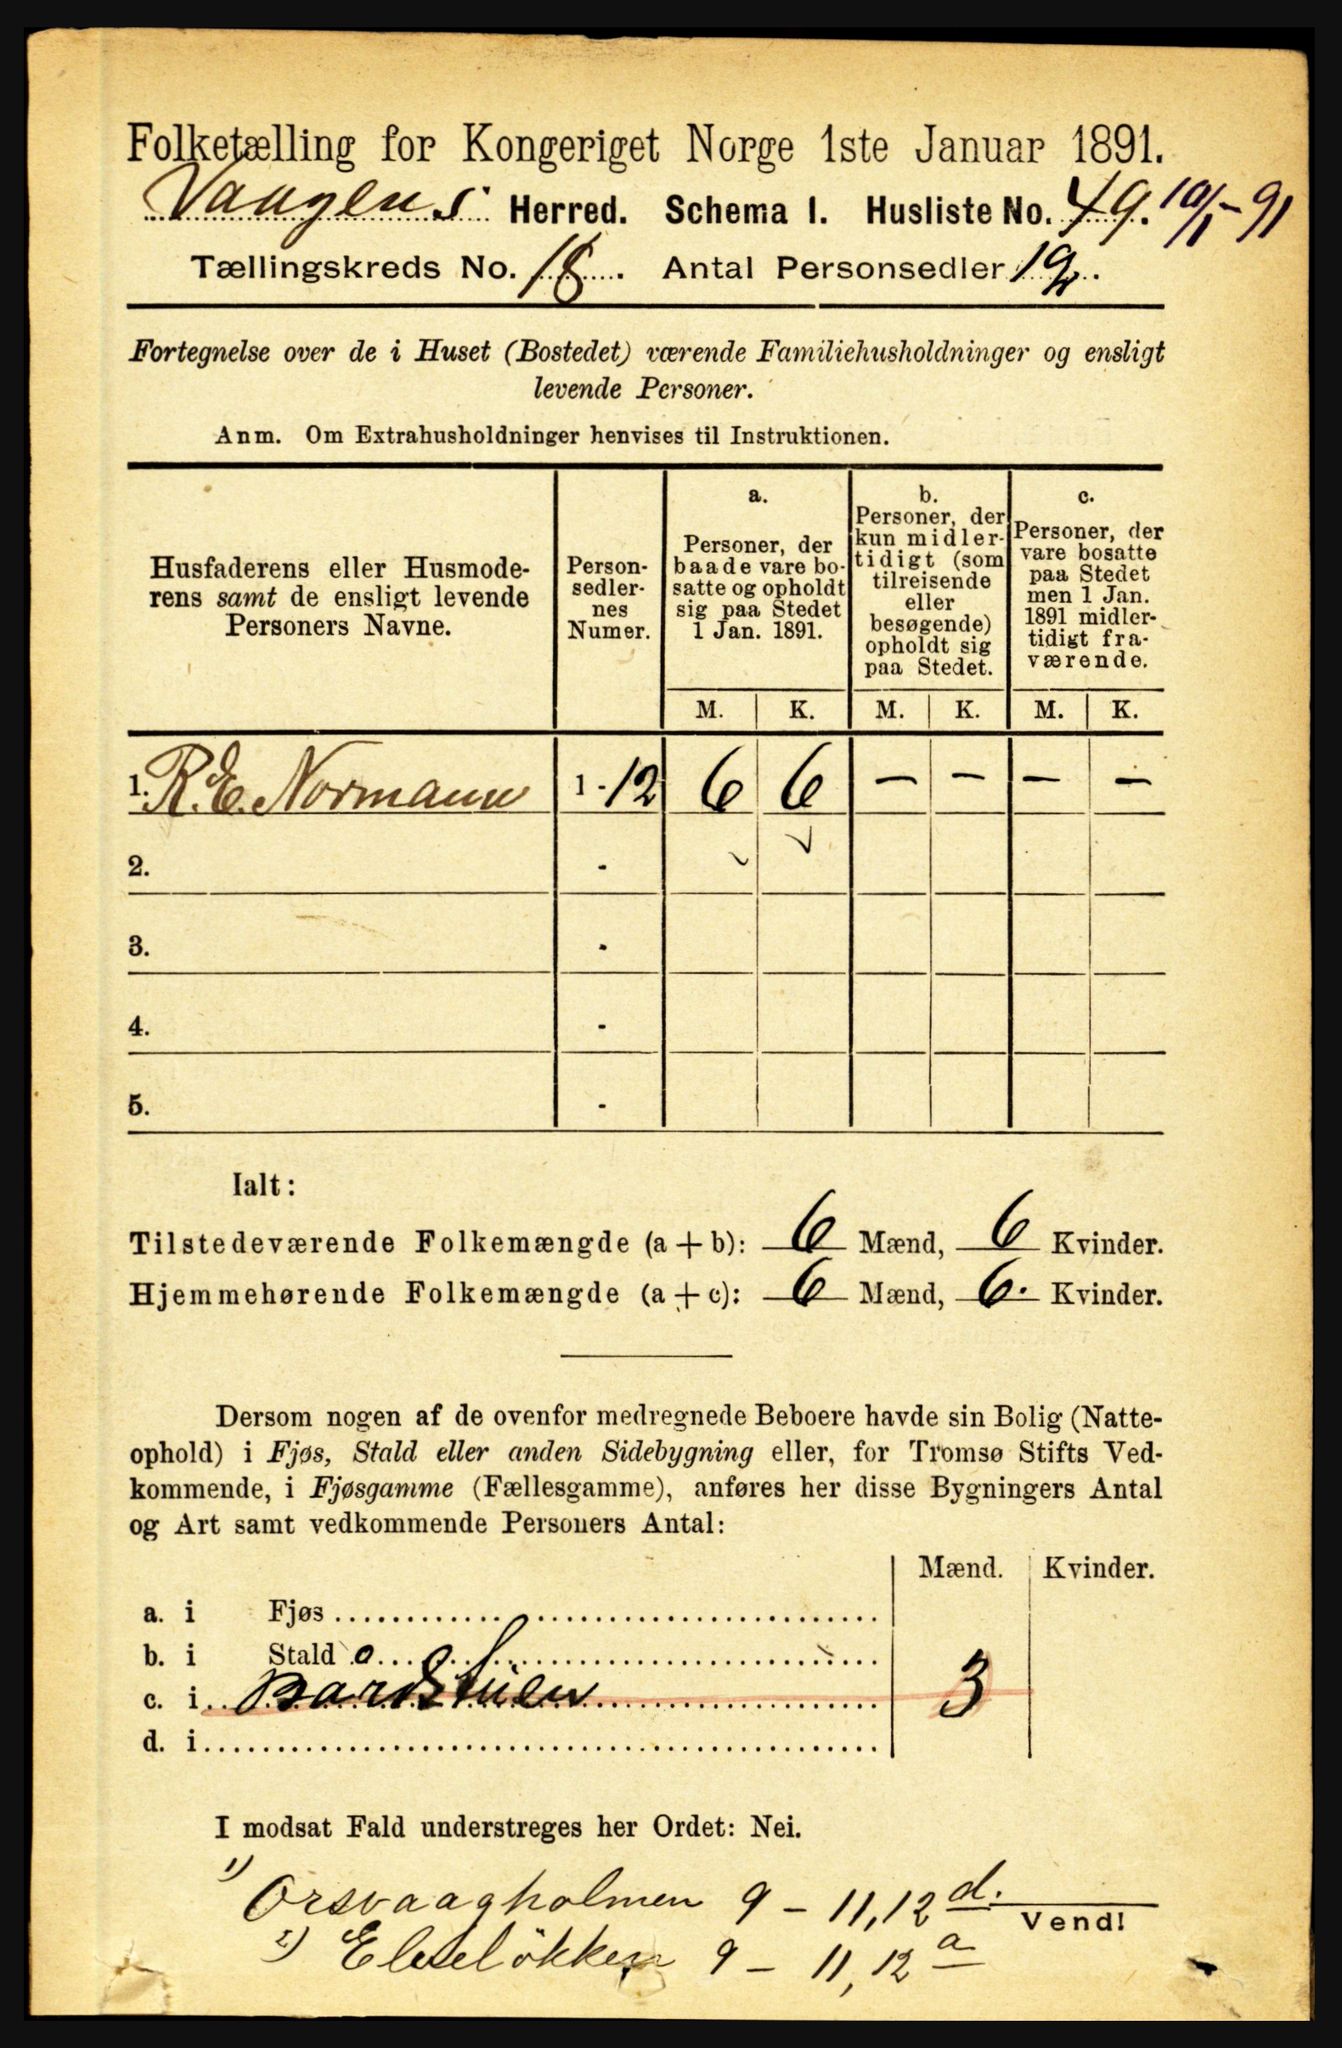 Folketælling for Kongeriget Norge 1ste Januar 1891.
Vaagens Herred. Schema I. Husliste No. 49. 10/1-91
Tællingskreds No. 18. Antal Personsedler 12.
Fortegnelse over de i Huset (Bostedet) værende Familiehusholdninger og ensligt
levende Personer.
Anm. Om Extrahusholdninger henvises til Instruktionen.
Husfaderens eller Husmode-
rens samt de ensligt levende
Personers Navne.
Person-
sedler-
nes
Numer.
a.
Personer, der
baade vare bo-
satte og opholdt
sig paa Stedet
1 Jan. 1891.
b.
Personer, der
kun midler-
tidigt (som
tilreisende
eller
besøgende)
opholdt sig
paa Stedet.
c.
Personer, der
vare bosatte
paa Stedet
men 1 Jan.
1891 midler-
tidigt fra-
værende.
M. K. M. K. M. K.
1. R. E. Normann 1 - 12 6 6 — — — —
2. -
3. -
4. -
5. -
Ialt:
Tilstedeværende Folkemængde (a + b): 6 Mænd, 6 Kvinder.
Hjemmehørende Folkemængde (a + c): 6 Mænd, 6. Kvinder.
Dersom nogen af de ovenfor medregnede Beboere havde sin Bolig (Natte-
ophold) i Fjøs, Stald eller anden Sidebygning eller, for Tromsø Stifts Ved-
kommende, i Fjøsgamme (Fællesgamme), anføres her disse Bygningers Antal
og Art samt vedkommende Personers Antal:
Mænd. Kvinder.
a. i Fjøs
b. i Stald
c. i 3
d. i
I modsat Fald understreges her Ordet: Nei.
1) Orsvaagholmen 9 - 11,12 d.
Vend!
2) 9 - 11,12 a